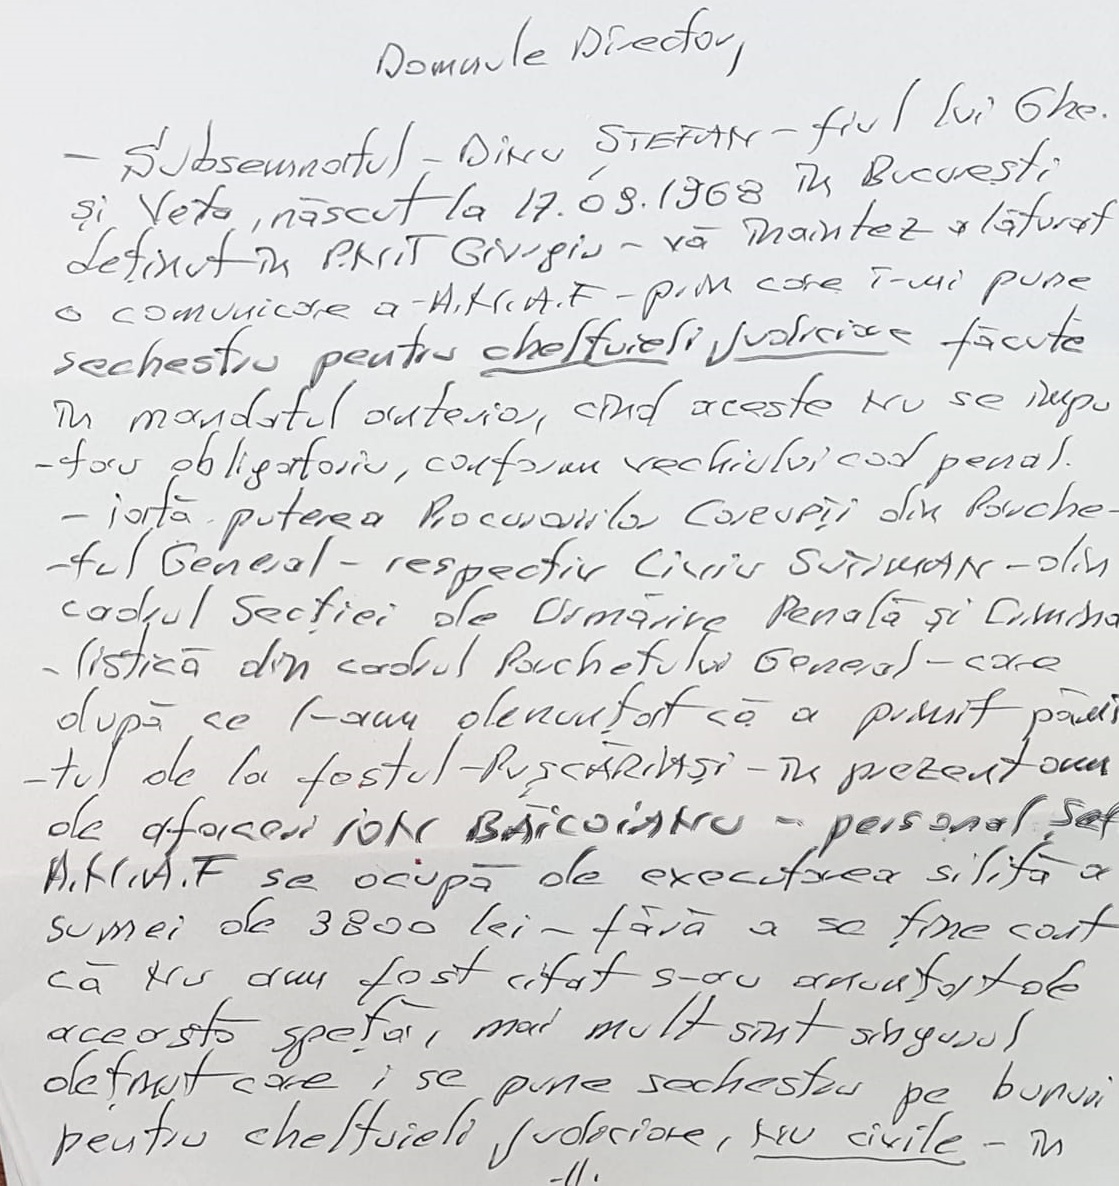 Domnule Director,
- Subsemnatul - Dinu ȘTEFAN - fiul lui Ghe.
și Veta, născut la 17.09.1968 în București
deținut în P.N.T Giurgiu - vă înaintez alăturat
o comunicare a - A.N.A.F - prin care î-mi pune
sechestru pentru cheltuieli judiciare făcute
în mandatul anterior, cînd aceste NU se impu
-tau obligatoriu, conform vechiului cod penal.
- iartă puterea Procurorilor Corupții din Parche-
-tul General - respectiv Liviu - din
cadrul Secției de Urmărire Penală și Crimina
-listică din cadrul Parchetului General - care
după ce l-am denunțat că a primit pămîn
-tul de la fostul - PUȘCĂRIAȘ - în prezent om
de afaceri ION BĂICOIANU - personal Șef
A.N.A.F se ocupă de executarea silită a
sumei de 3800 lei - fără a se ține cont
că NU am fost citat s-au anunțat de
această speță, mai mult sînt singurul
deținut care i se pune sechestru pe bunuri
pentru cheltuieli judiciare, NU civile - în
-//.